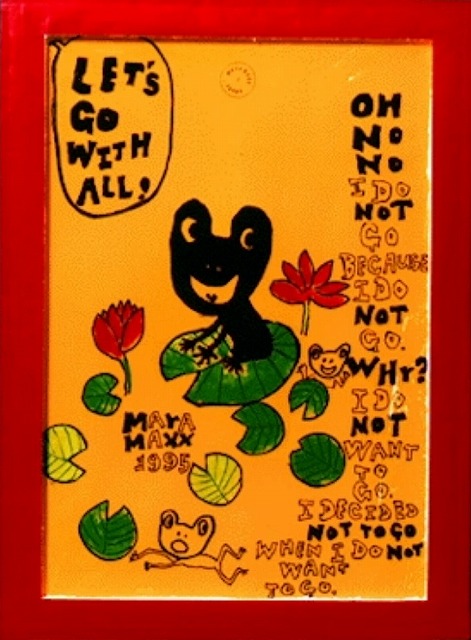 LET'S
GO
WITH
ALL!
OH
NO
NO
I DO
NOT
GO
BECAUSE
I DO
NOT
GO.
WHY?
I DO
NOT
WANT
TO
GO.
I DECIDED
NOT TO GO
WHEN I DO NOT
WANT
TO GO.
MARA
MAXX
1995